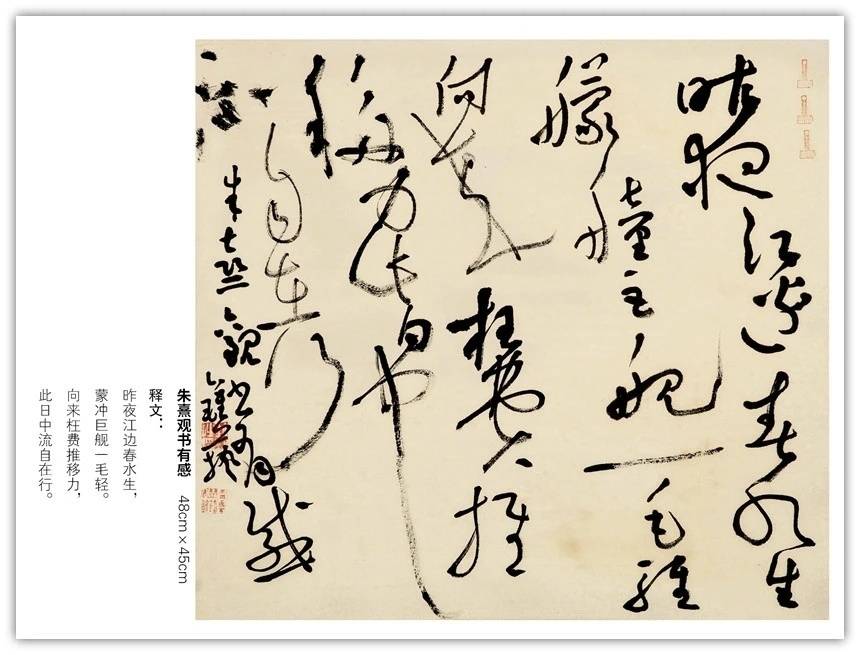 昨夜江邊春水生
艨艟巨艦一毛輕
向來枉費推
移力此日中
流自在行
朱熹觀書有感
朱熹观书有感 48cm×45cm
释文：
昨夜江边春水生，
蒙冲巨舰一毛轻。
向来枉费推移力，
此日中流自在行。